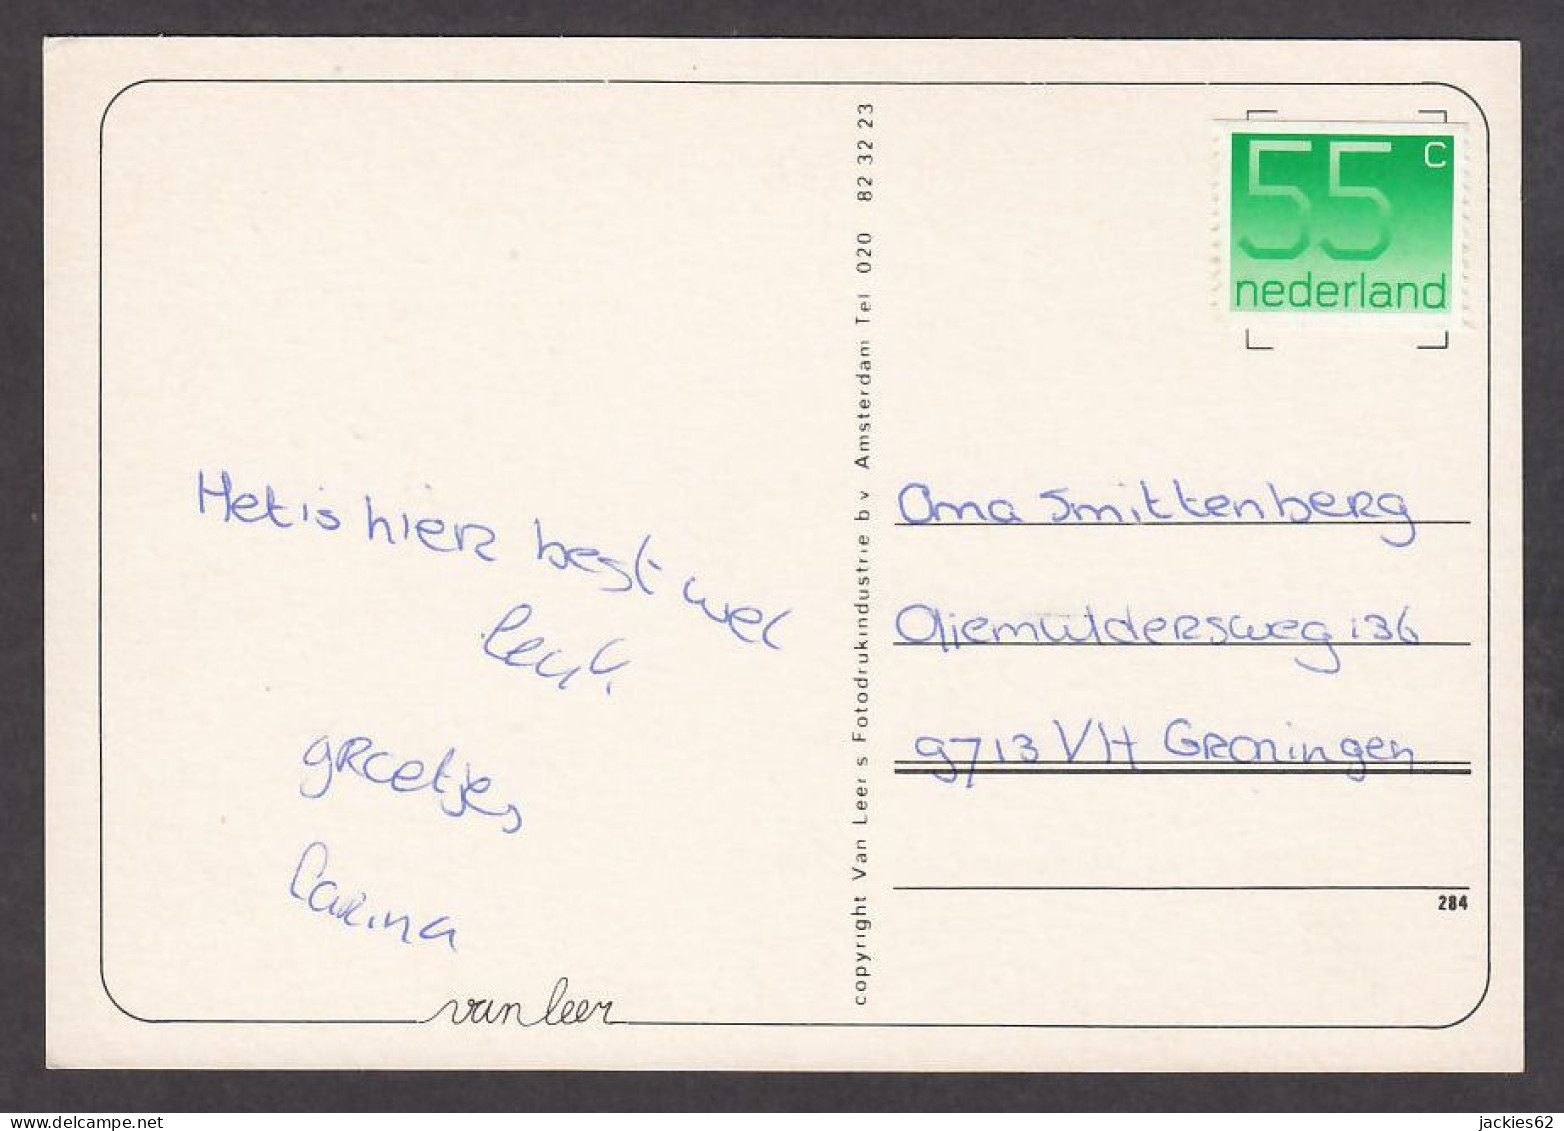 Het is hier best wel
leuk.
groetjes
Carina
van leer
copyright Van Leer's Fotodrukindustrie bv Amsterdam Tel 020 82 32 23
55 c
nederland
Oma Smittenberg
Oliemuldersweg 136
9713 VH Groningen
284
jackies62